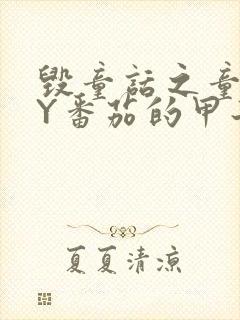 毁童话之童
Y番茄的甲
夏夏清凉